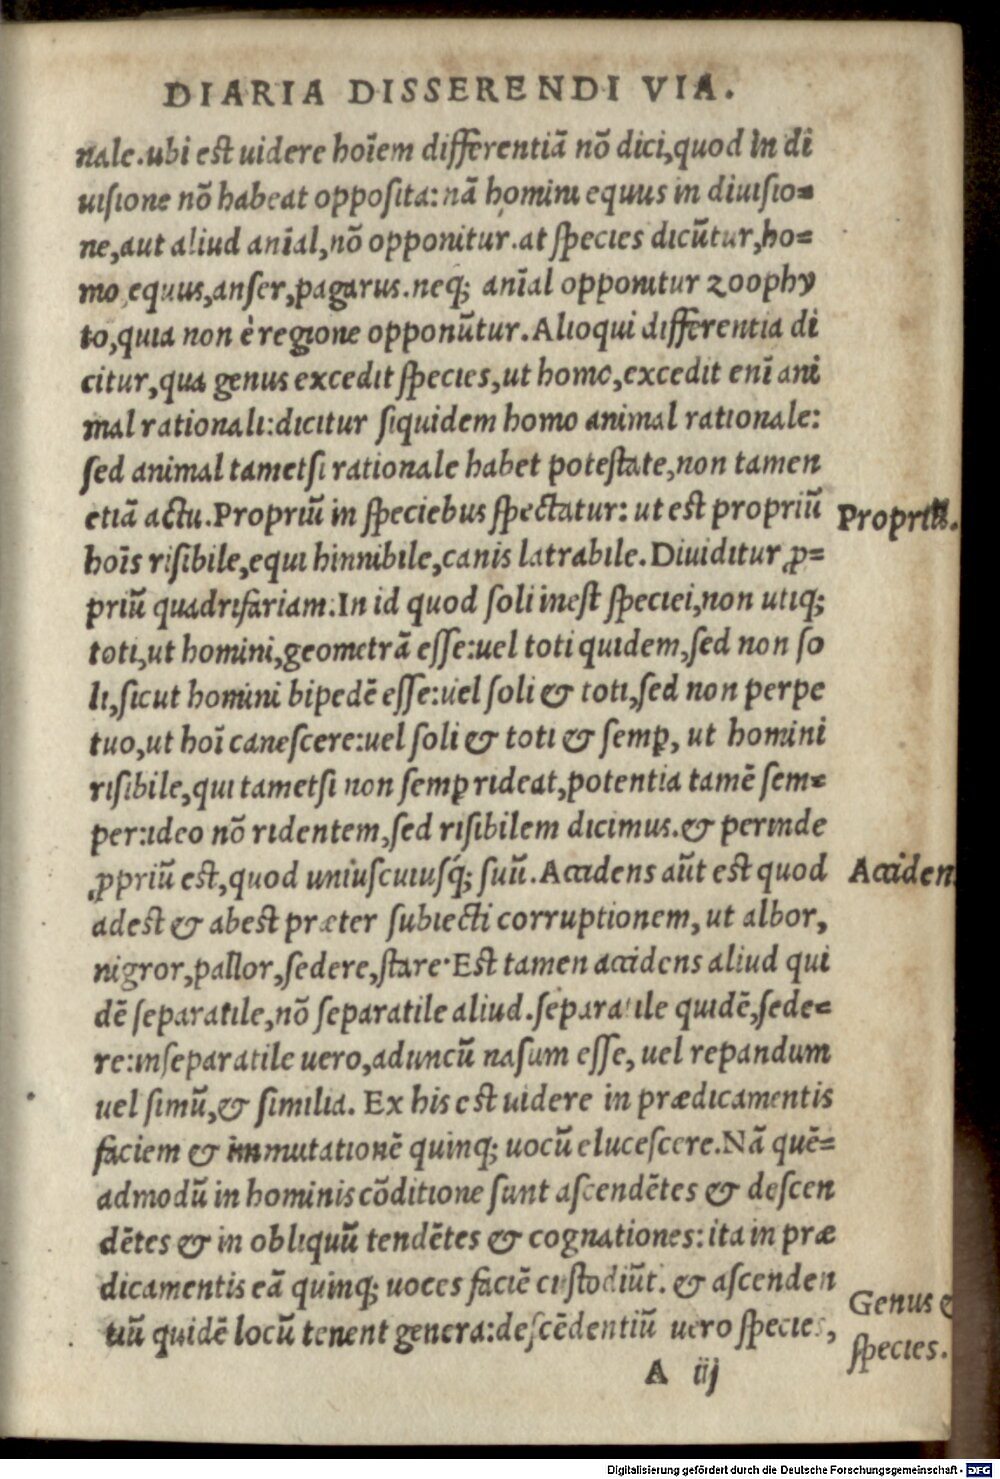 DIARIA DISSERENDI VIA.
nale.ubi est uidere hoīem differentiā nō dici,quod in di
uisione nō habeat opposita:nā homini equus in diuisio=
ne,aut aliud anīal,nō opponitur.at species dicūtur,ho=
mo,equus,anser,pagarus.neq; anīal opponitur zoophy
to,quia non è regione opponūtur.Alioqui differentia di
citur,qua genus excedit species,ut homo,excedit enī ani
mal rationali:dicitur siquidem homo animal rationale:
sed animal tametsi rationale habet potestate,non tamen
etiā actu.Propriū in speciebus spectatur: ut est propriū
Propriū.
hoīs risibile,equi hinnibile,canis latrabile.Diuiditur ꝓ=
priū quadrifariam.In id quod soli inest speciei,non utiq;
toti,ut homini,geometrā esse:uel toti quidem,sed non so
li,sicut homini bipedē esse:uel soli & toti,sed non perpe
tuo,ut hoī canescere:uel soli & toti & semꝑ, ut homini
risibile,qui tametsi non semꝑ rideat,potentia tamē sem=
per:ideo nō ridentem,sed risibilem dicimus.& perinde
ꝓpriū est,quod uniuscuiusq́; suū.Accidens aūt est quod
Acciden
adest & abest præter subiecti corruptionem, ut albor,
nigror,pallor,sedere,stare·Est tamen accidens aliud qui
dē separatile,nō separatile aliud.separatile quidē,sede=
re:inseparatile uero,aduncū nasum esse, uel repandum
uel simū,& similia. Ex his est uidere in prædicamentis
faciem & immutationē quinq; uocū elucescere.Nā quē=
admodū in hominis cōditione sunt ascendētes & descen
dētes & in obliquū tendētes & cognationes:ita in præ
dicamentis eā quinq; uoces faciē custodiūt. & ascenden
tiū quidē locū tenent genera:descēdentiū uero species,
Genus &
species.
A iij
Digitalisierung gefördert durch die Deutsche Forschungsgemeinschaft - DFG